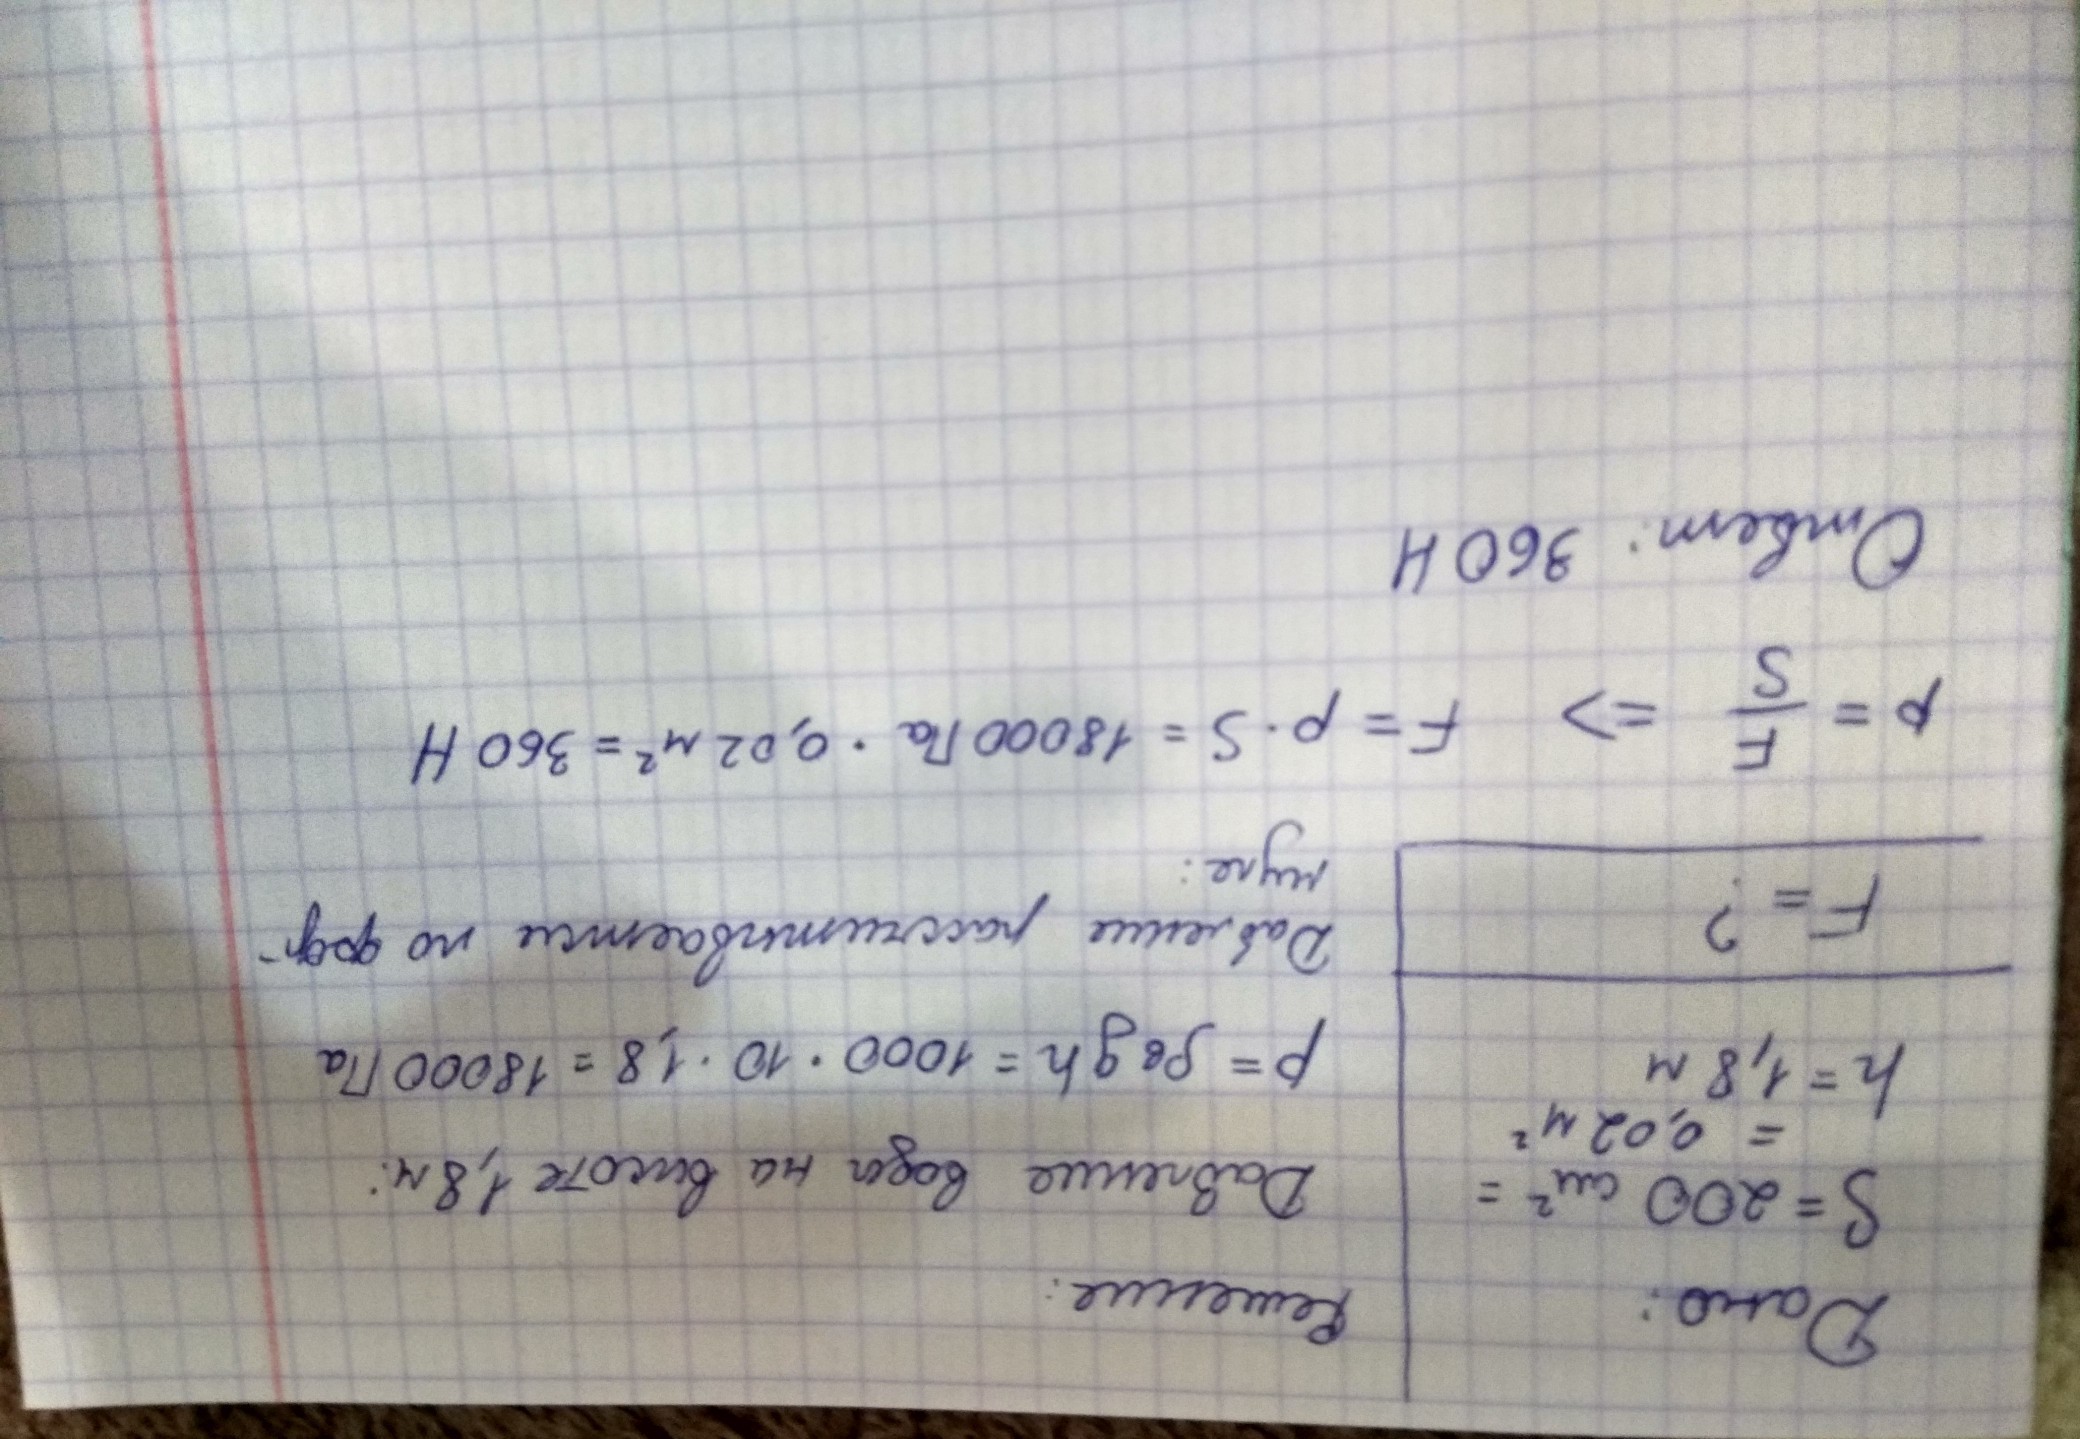 Дано:
S = 200 см² =
= 0,02 м²
h = 1,8 м
F = ?
Решение:
Давление воды на высоте 1,8 м:
p = ρвgh = 1000 · 10 · 1,8 = 18000 Па
Давление рассчитывается по фор-
муле:
p = F/S => F = p · S = 18000 Па · 0,02 м² = 360 Н
Ответ: 360 Н